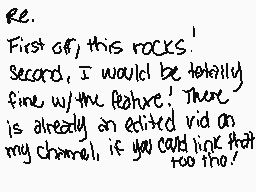 Re.
First off, this rocks!
Second, I would be totally
fine w/ the feature! There
is already an edited vid on
my channel, if you could link that
too tho!